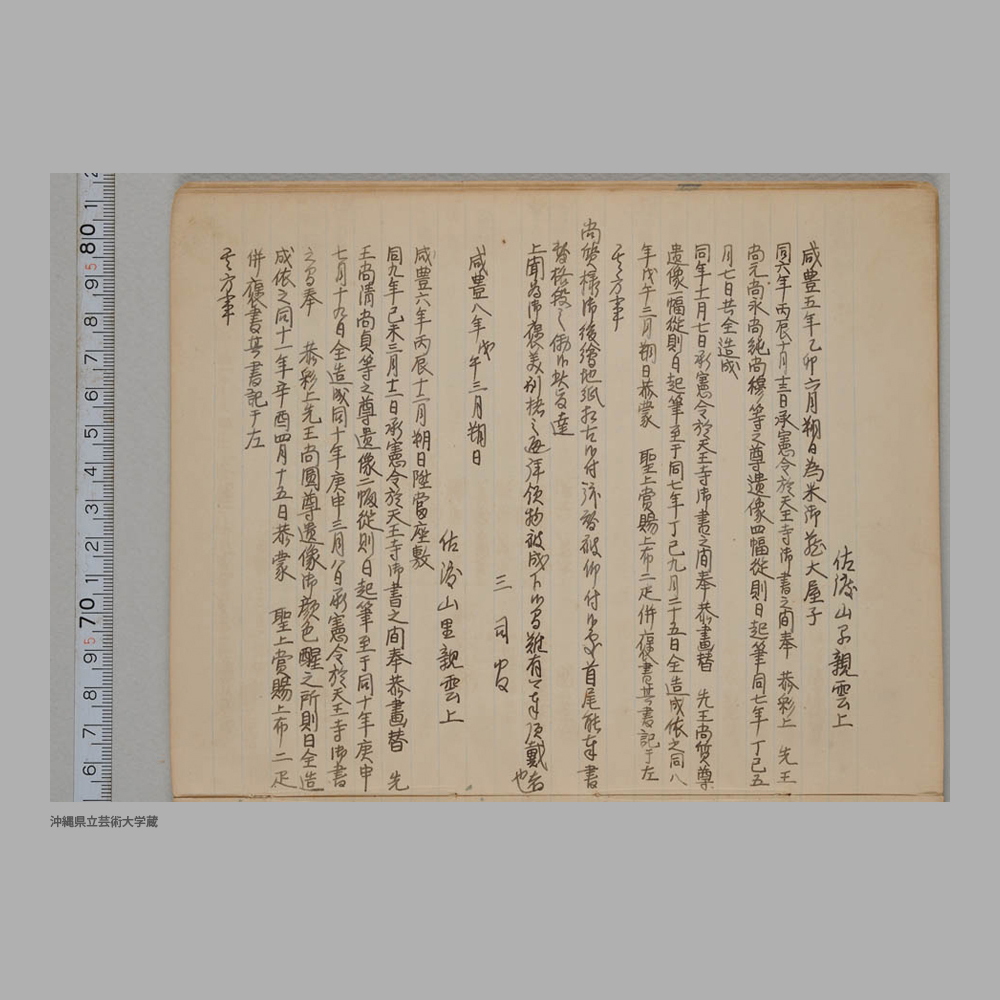 佐渡山子親雲上
咸豊五年乙卯六月朔日為米御蔵大屋子
同六年丙辰十月十三日承憲令於天王寺御書之間奉 恭彩上 先王
尚元尚永尚純尚穆等之尊遺像四幅従則日起筆同七年丁巳五
月七日共全造成
同年十一月七日承憲令於天王寺御書之間奉恭畫替 先王尚質尊
遺像一幅従則日起筆至于同七年丁巳九月二十五日全造成依之同八
年戊午三月朔日恭蒙 聖上賞賜上布二疋併褒書其書記于左
其方事
尚 様御後繪地紙 付 被仰付 首尾能 書
替
上聞為御褒美 拝領物被成下 難有 頂戴 也
咸豊八年戊午三月朔日
三司官
佐渡山里親雲上
咸豊六年丙辰十二月朔日陞當座敷
同九年己未三月十二日承憲令於天王寺御書之間奉恭畫替 先
王尚清尚貞等之尊遺像二幅従則日起筆至于同十年庚申
七月十九日全造成同十年庚申三月八日承憲令於天王寺御書
之間奉 恭彩上先王尚圓尊遺像御顔色醒之所則日全造
成依之同十一年辛酉四月十五日恭蒙 聖上賞賜上布二疋
併褒書其書記于左
其方事
8
7
6
5
4
3
2
1
70
9
8
7
6
80
1
沖縄県立芸術大学蔵